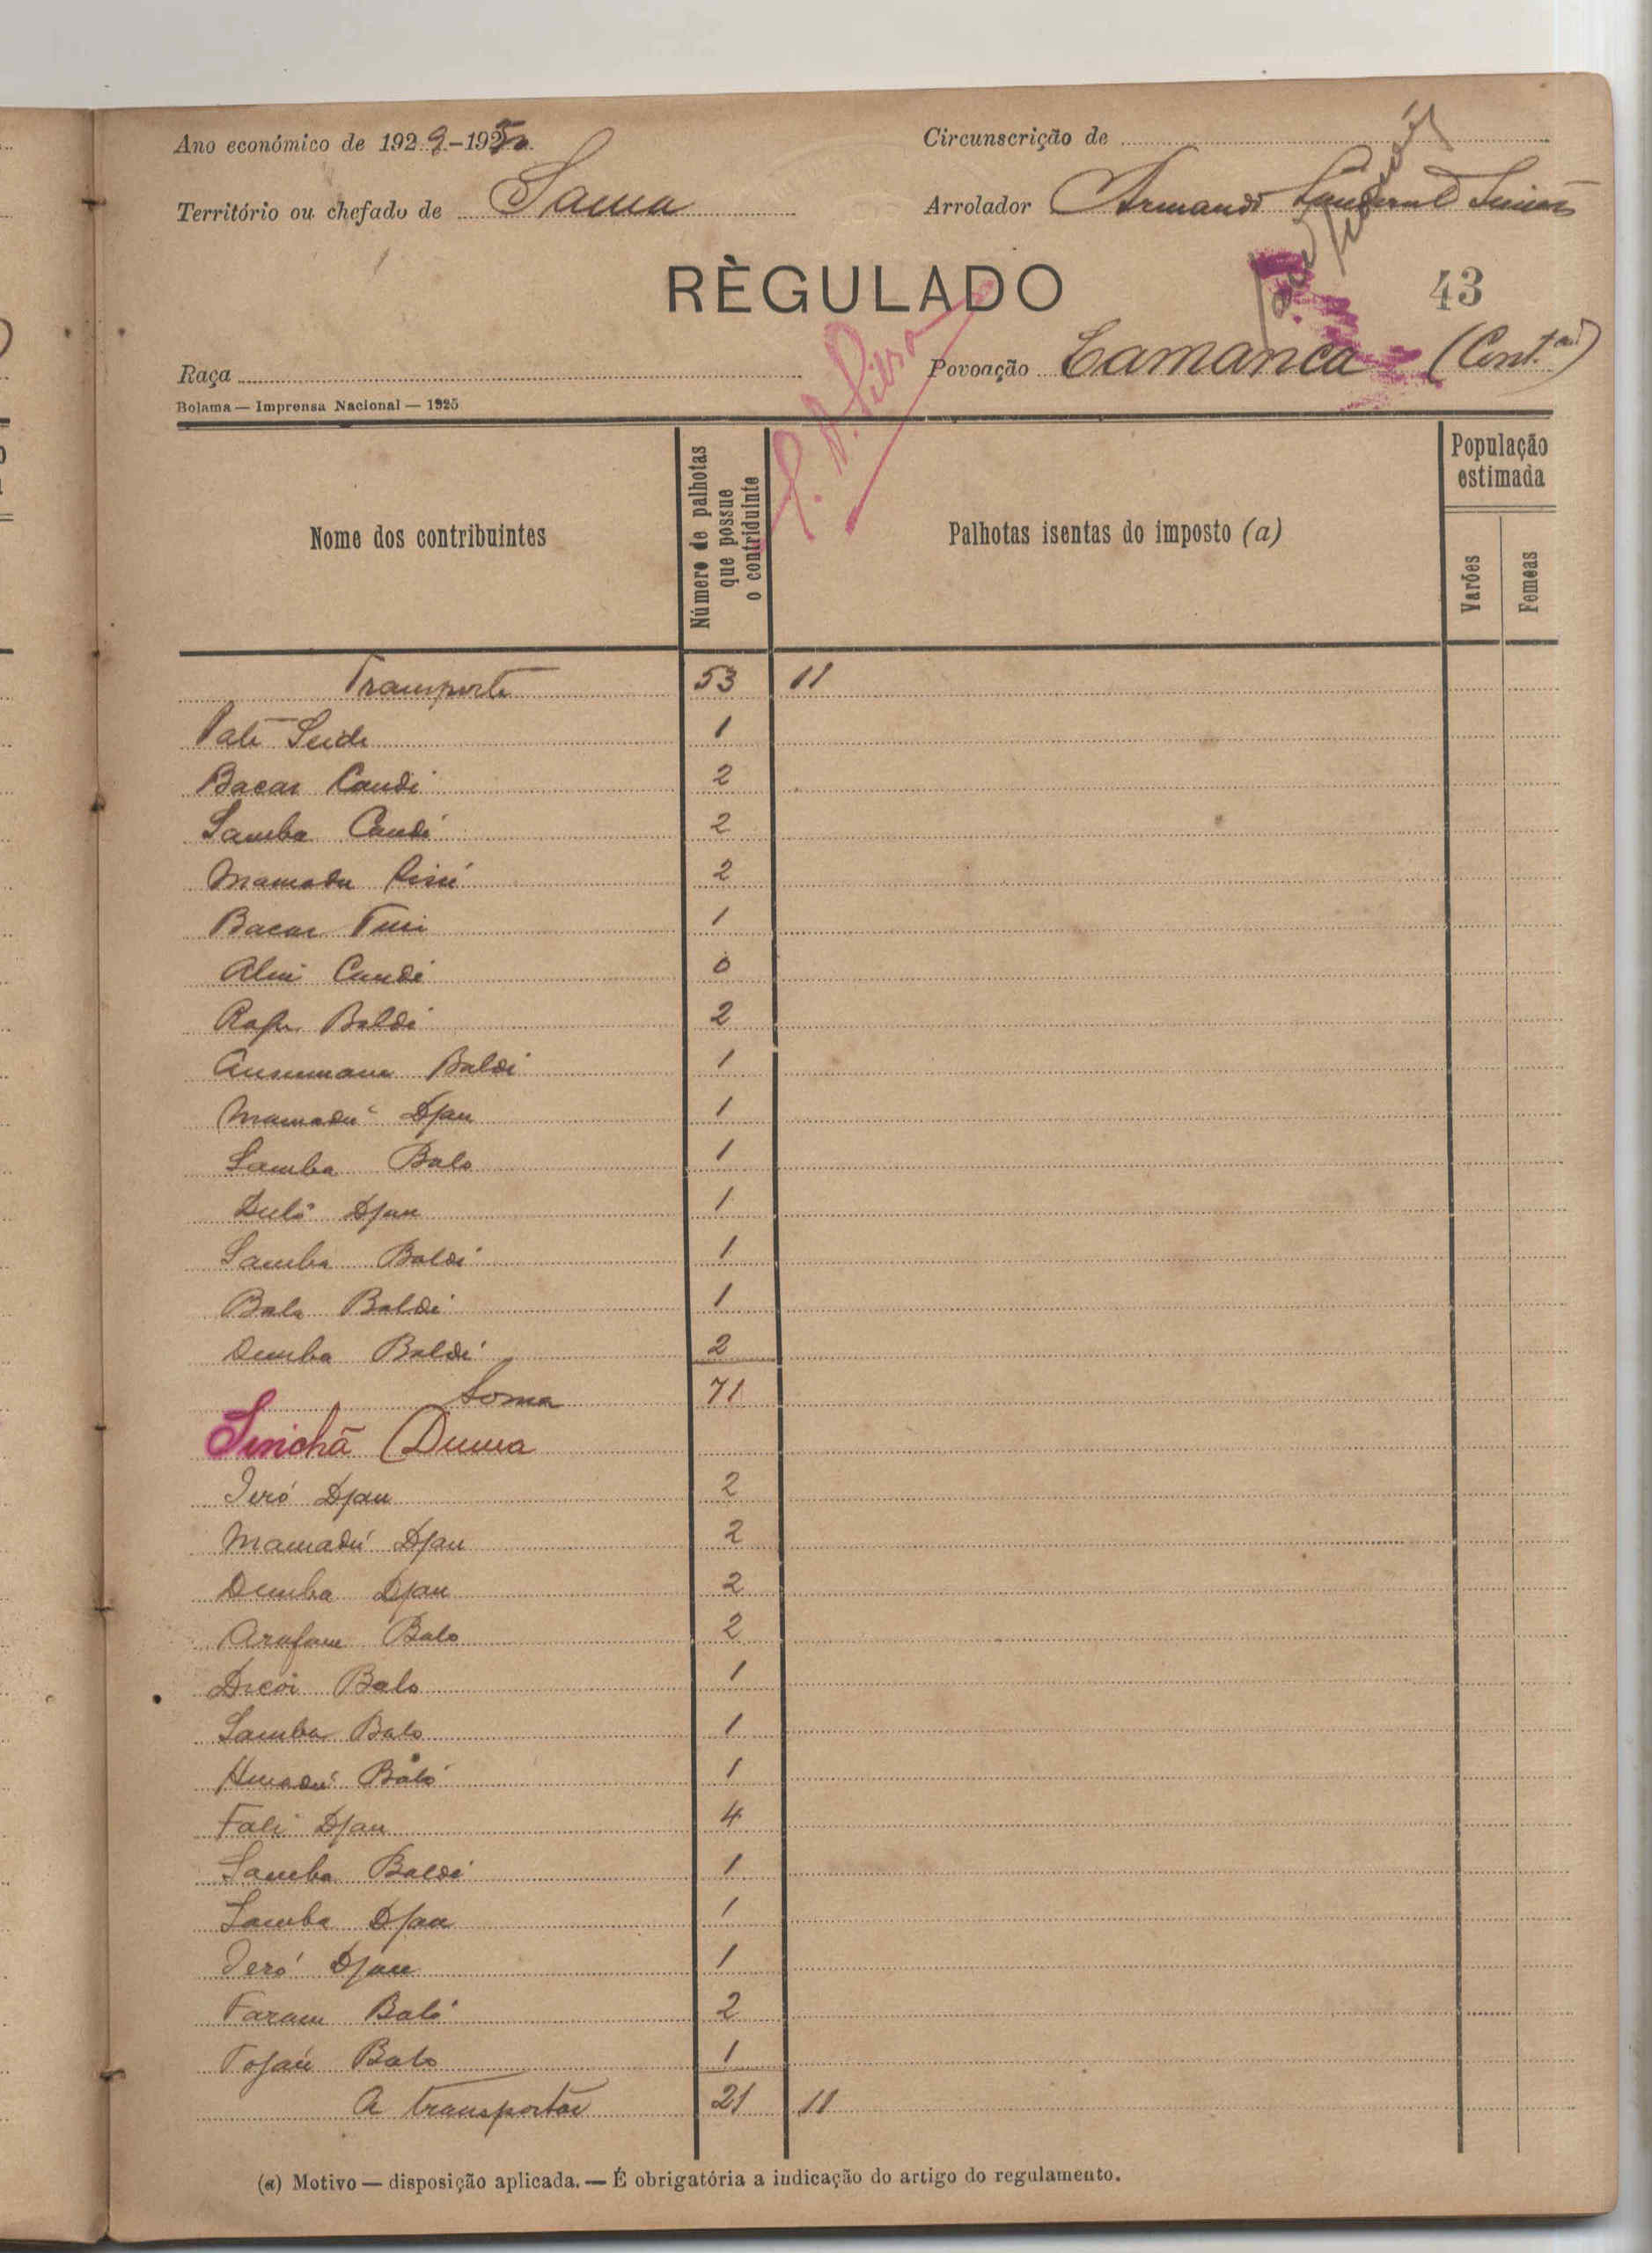 Ano económico de 1929-1930
Circunscrição de
Território ou chefado de Sama
Arrolador Armando
RÈGULADO
43
Raça
Povoação Camanca (Cont.ão)
Bolama — Imprensa Nacional — 1925
Nome dos contribuintes
Número de palhotas que possue o contriduinte
Palhotas isentas do imposto (a)
População estimada
Varões
Femeas
Transporte 53 11
Pate Seidi 1
Bacar Candi 2
Samba Candi 2
Mamadu 2
Bacar 1
Candé 0
Baldi 2
Baldi 1
Mamadú Djau 1
Samba Balo 1
Djau 1
Samba Baldi 1
Bala Baldé 1
Demba Baldé 2
Soma 71
Sinchã Duma
Jeró Djau 2
Mamadú Djau 2
Demba Djau 2
Arafam Balo 2
Dicói Balo 1
Samba Balo 1
Amadú Baló 1
Fali Djau 4
Samba Baldé 1
Samba Djau 1
Jeró Djau 1
Faram Baló 2
Balo 1
A transportar 21 11
(a) Motivo — disposição aplicada. — É obrigatória a indicação do artigo do regulamento.